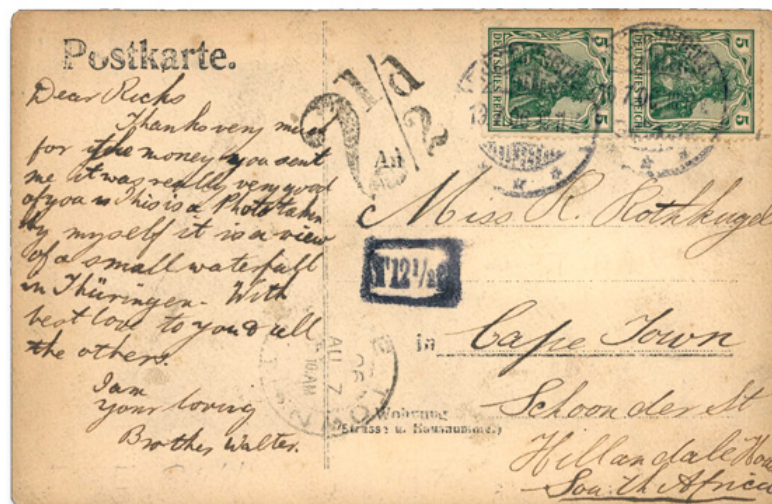 Postkarte.
Dear Richs
Thanks very much
for the money you sent
me it was really very good
of you is This is a Photo taken
by myself it is a view
of a small waterfall
in Thüringen. With
best love to you & all
the others.
I am
your loving
Brother Walter.
2 1/d
2
An
5 DEUTSCHES REICH 5
5 DEUTSCHES REICH 5
Miss R. Rothkugel
T 12 1/2 c
in Cape Town
Wohnung
(Strasse u. Hausnummer)
Schoonder St
Hillandale House
South Africa
AU 7
06
10 AM